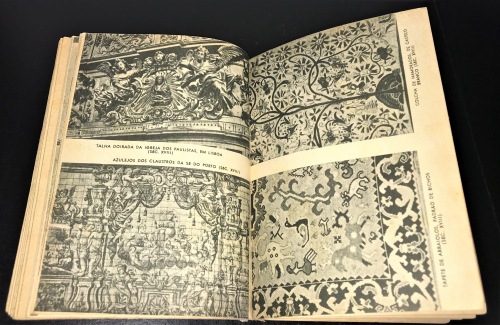 TALHA DOIRADA DA IGREJA DOS PAULISTAS, EM LISBOA
(SÉC. XVIII)
AZULEJOS DOS CLAUSTROS DA SÉ DO PORTO (SÉC. XVIII)
COLCHA DE
BRANCO (SÉC. XVII)
TAPETE DE ARRAIOLOS, PADRÃO DE BICHOS
(SÉC. XVII)